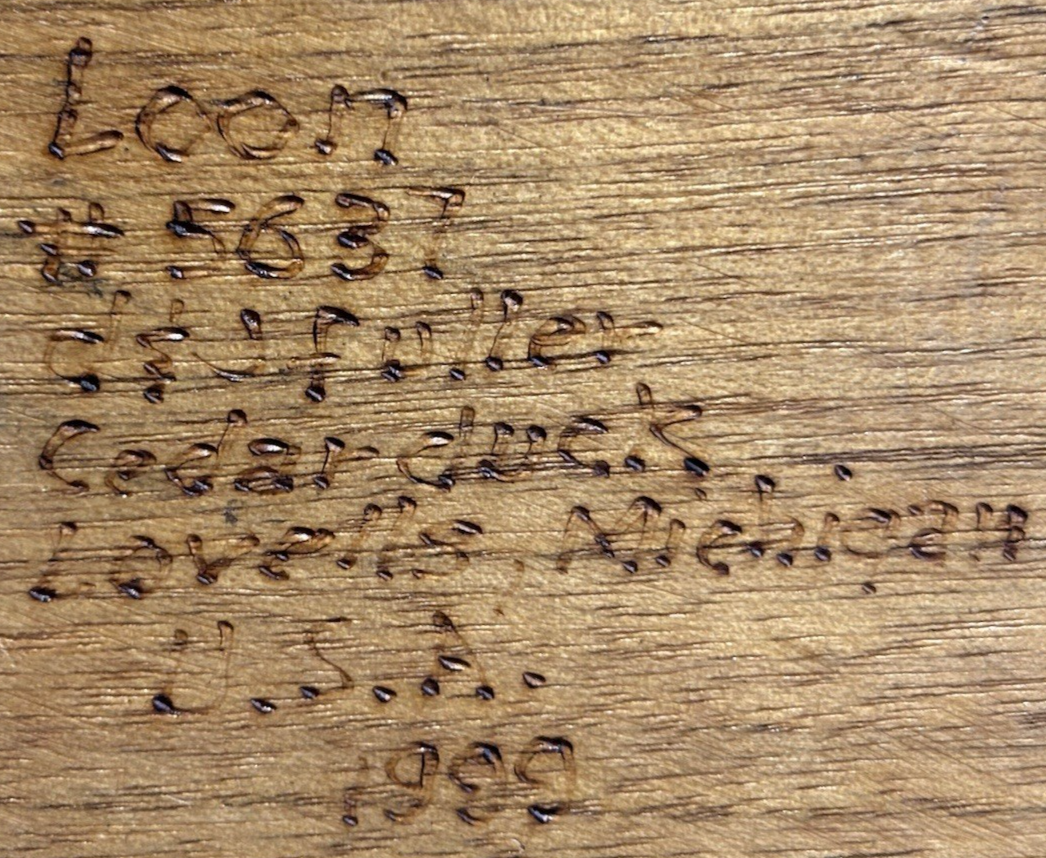 Loon
# 5637
d & J fuller
Cedar duck
Lovells, Michigan
U.S.A.